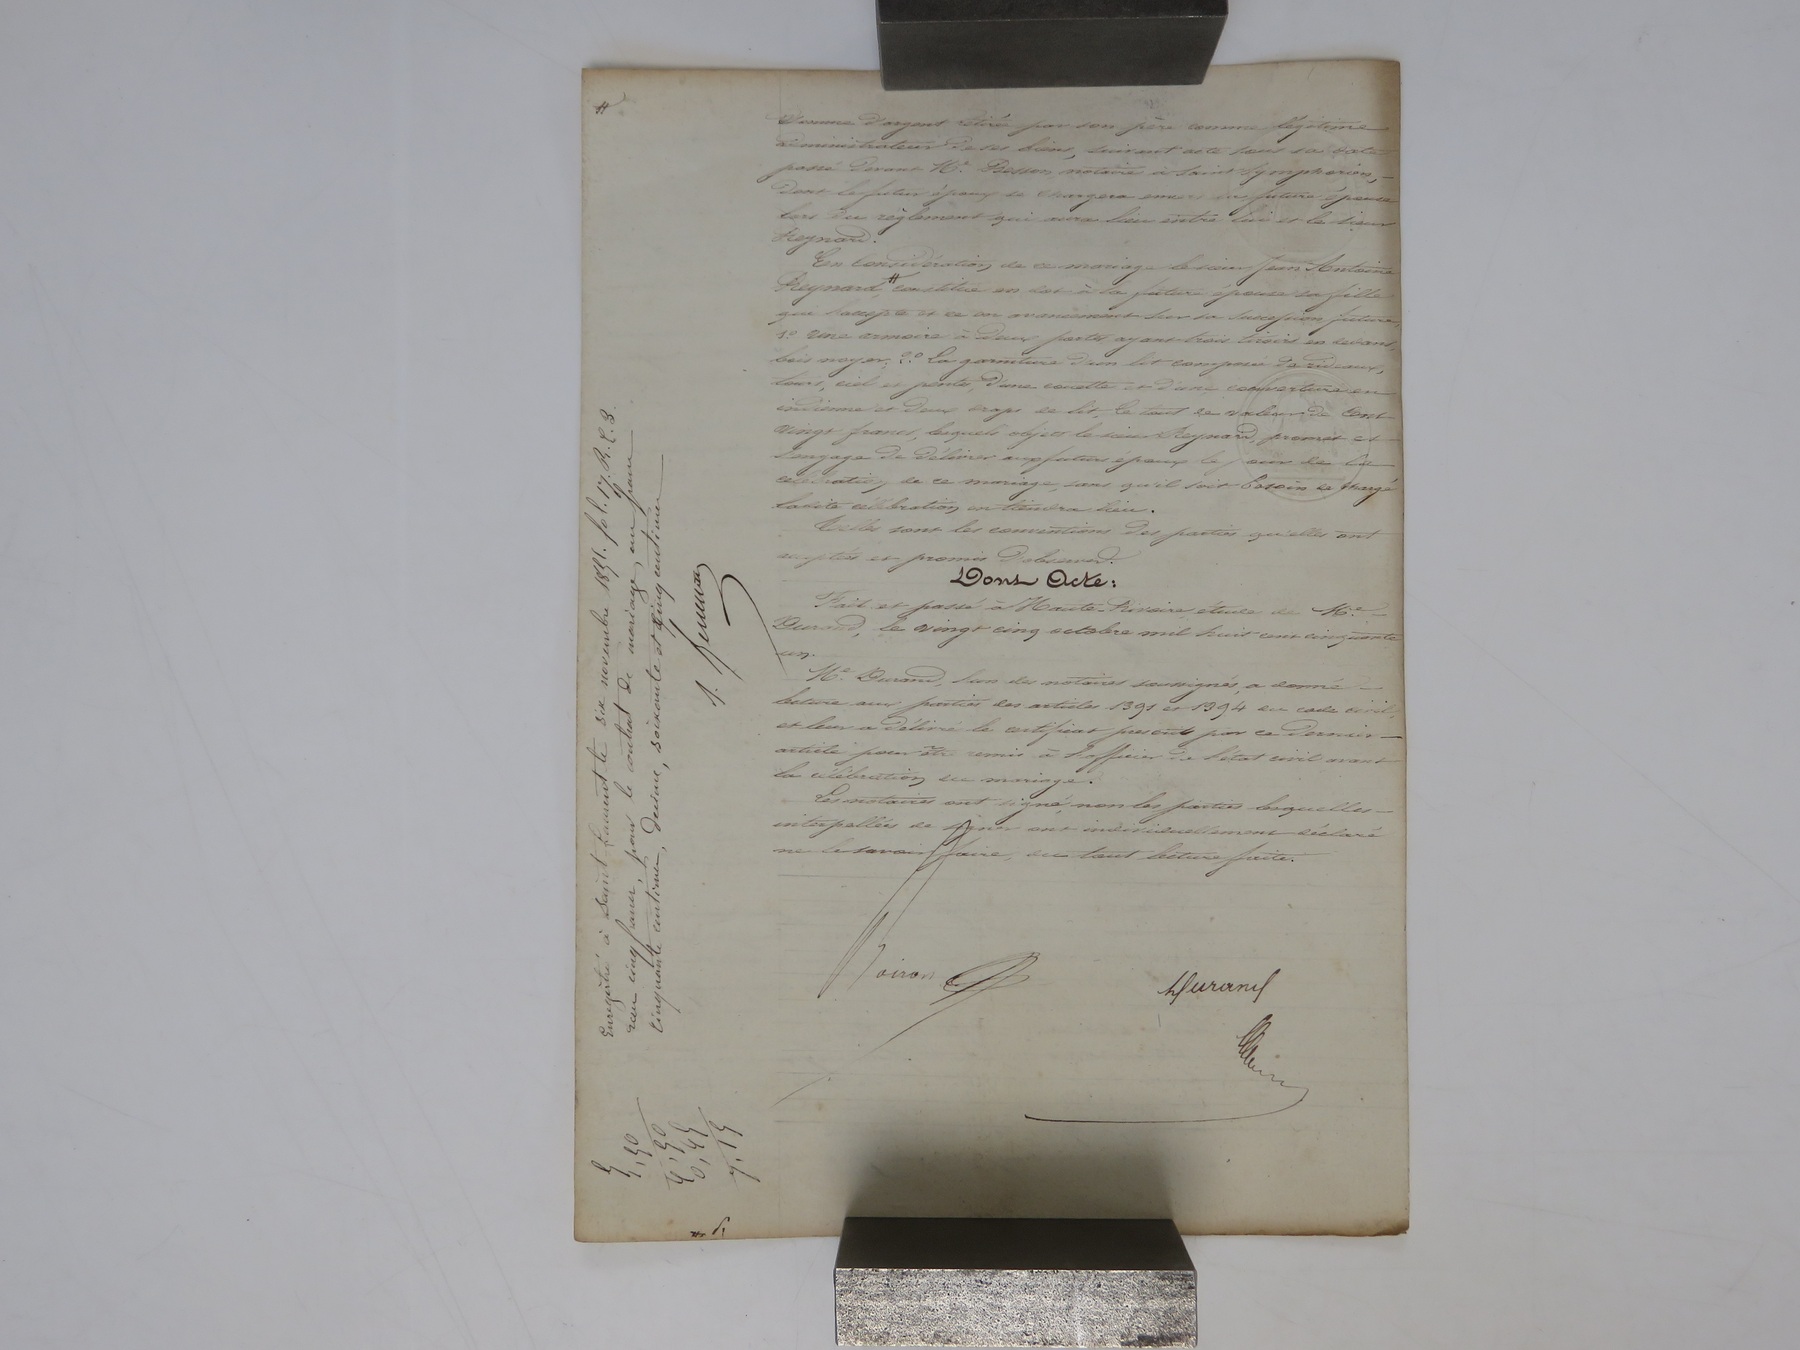 Somme d'argent retirée par son père comme légitime
administrateur de ses biens, suivant acte sous sa date
passé devant Me. Besson notaire à Saint Symphorien,
Dont le futur époux se chargera envers la future épouse
lors du règlement qui aura lieu entre lui et le sieur
Reynard.
En considération de ce mariage le sieur Jean Antoine
Reynard # constitue en dot à la future épouse sa fille
qui l'accepte et ce en avancement sur sa succession future,
1° une armoire à deux portes ayant trois tiroirs en devant,
bois noyer, 2° la garniture d'un lit composée de rideaux,
tours, ciel et pente, d'une couette et d'une couverture en
indienne et deux draps de lit, le tout de valeur de Cent
vingt francs, lesquels objets le sieur Reynard, promet et
s'engage de délivrer aux futurs époux le jour de la
célébration de ce mariage, sans qu'il soit besoin de
ladite célébration en tiendra lieu.
Telles sont les conventions des parties qu'elles ont
acceptées et promis d'observer.
Dont Acte:
Fait et passé à Haute-Rivoire, étude de Me.
Durand, le vingt cinq octobre mil huit cent cinquante
un.
Me. Durand, l'un des notaires soussignés, a donné
lecture aux parties des articles 1391 et 1394 du code civil,
et leur a délivré le certificat prescrit par ce dernier
article pour être remis à l'officier de l'état civil avant
la célébration du mariage.
Les notaires ont signé, non les parties lesquelles
interpellées de signer ont individuellement déclaré
ne le savoir faire, du tout lecture faite.
Durand
Enregistré à Saint Laurent le six novembre 1851. fol. 17. R. C. 3.
reçu cinq francs, pour le contrat de mariage, un franc
cinquante centimes, decime, soixante et cinq centimes
5
1,50
6,50
0,65
7.15